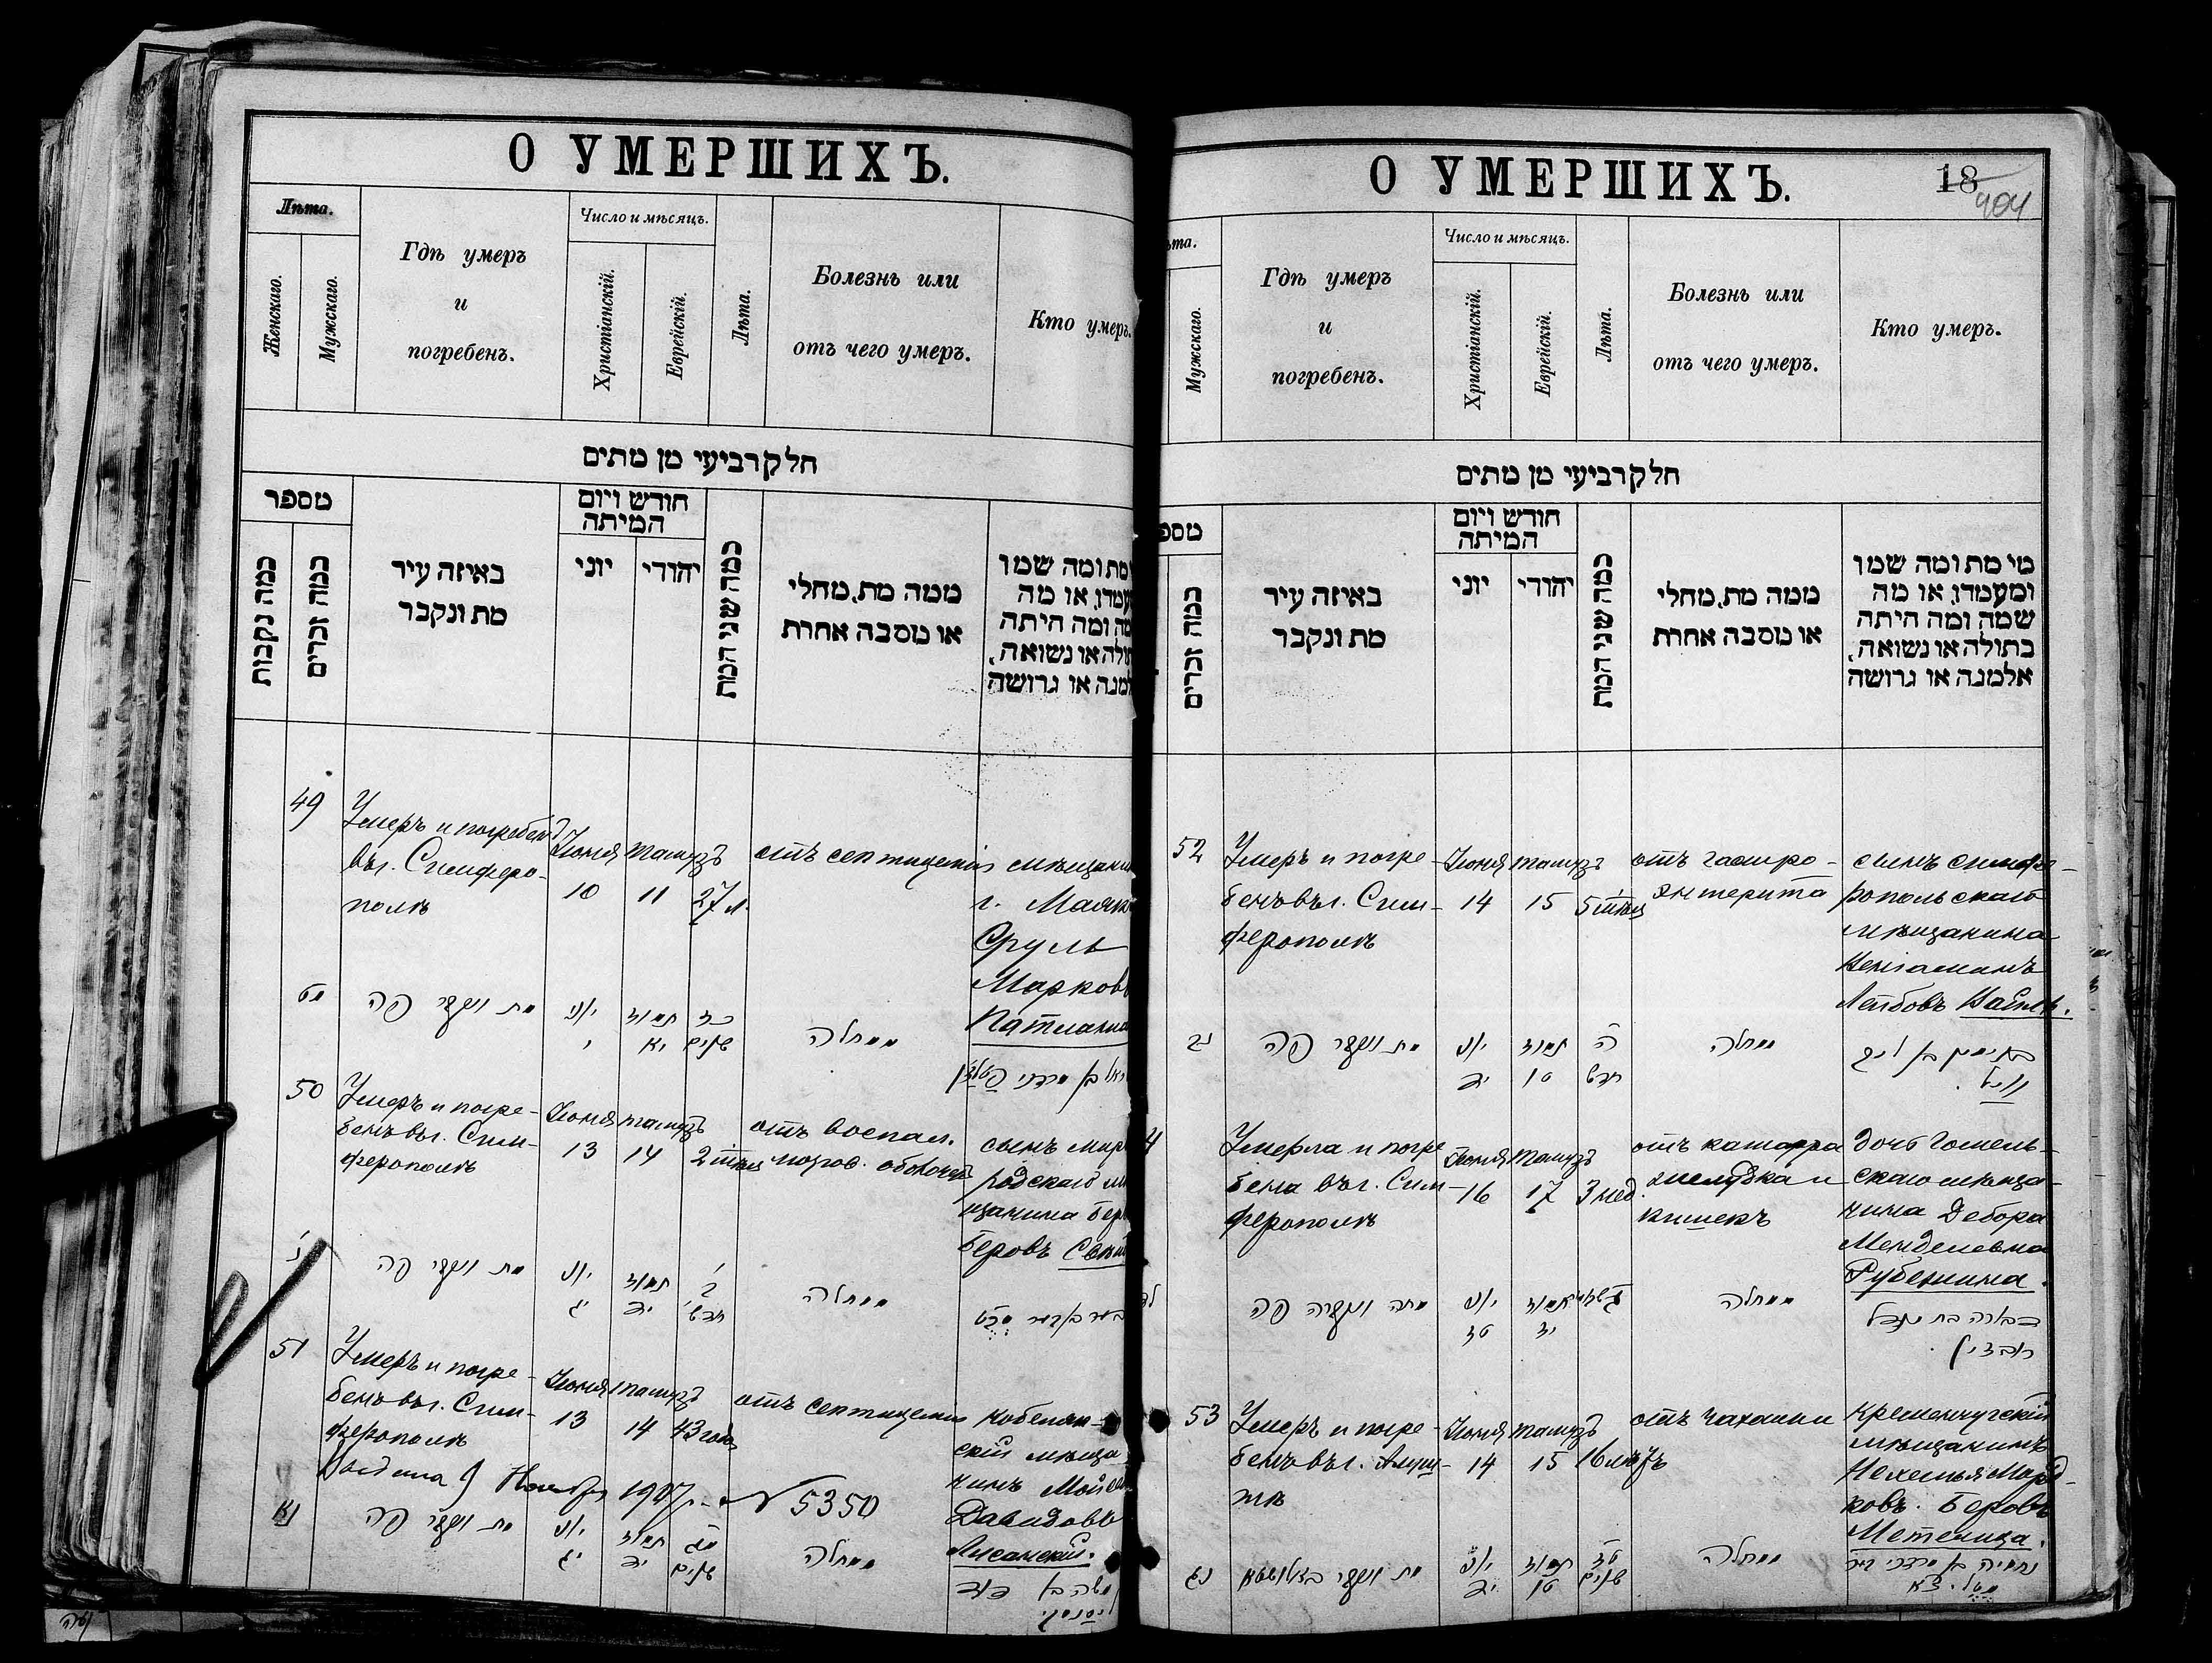 О УМЕРШИХЪ.
Лѣта.
Женскаго.
Мужскаго.
Гдѣ умеръ
и
погребенъ.
Число и мѣсяцъ.
Христіанскій.
Еврейскій.
Лѣта.
Болезнь или
отъ чего умеръ.
Кто умеръ.
חלק רביעי מן מתים
מספר
כמה נקבות
כמה זכרים
באיזה עיר
מת ונקבר
חודש ויום
המיתה
יוני
יהודי
כמה שני המת
ממה מת, מחלי
או מסבה אחרת
מת ומה שמו
או מה
ומה היתה
או נשואה,
או גרושה
49
Умеръ и погребенъ
въ г. Симферо-
полѣ
Іюня
10
тамузъ
11
27 л.
отъ септицеміи
мѣщанин
г. Маяк
Сруль
Марков
מט
מת ונקבר פה
יוני
י
תמוז
יא
כז
שנים
ממחלה
בן מרדכי
50
Умеръ и погре-
бенъ въ г. Сим-
ферополѣ
Іюня
13
тамузъ
14
2 мѣсяц
отъ воспал.
мозгов. оболочекъ
сынъ мир
родскаго м
щанина Бер
Беровъ
נ
מת ונקבר פה
יוני
יג
תמוז
יד
ב
חדשי
ממחלה
51
Умеръ и погре-
бенъ въ г. Сим-
ферополѣ
Іюня
13
тамузъ
14
43 года
отъ септицеміи
Кобеляк-
скій мѣща
нинъ Мойсей
Давидовъ
Лисанскій.
Выдана 9 Ноября 1907 г. № 5350
נא
מת ונקבר פה
יוני
יג
תמוז
יד
מג
שנים
ממחלה
משה בן דוד
О УМЕРШИХЪ.
18
404
ѣта.
Мужскаго.
Гдѣ умеръ
и
погребенъ.
Число и мѣсяцъ.
Христіанскій.
Еврейскій.
Лѣта.
Болезнь или
отъ чего умеръ.
Кто умеръ.
חלק רביעי מן מתים
מספ
כמה זכרים
באיזה עיר
מת ונקבר
חודש ויום
המיתה
יוני
יהודי
כמה שני המת
ממה מת, מחלי
או מסבה אחרת
מי מת ומה שמו
ומעמדו, או מה
שמה ומה היתה
בתולה או נשואה,
אלמנה או גרושה
52
Умеръ и погре-
бенъ въ г. Сим-
ферополѣ
Іюня
14
тамузъ
15
5 мѣсяц
отъ гастро-
энтерита
сынъ симфе-
ропольскаго
мѣщанина
Веніаминъ
Лейбовъ
נב
מת ונקבר פה
יוני
יד
תמוז
טו
ה
חדש
ממחלה
בנימין בן ליב
4
Умерла и погре
бена въ г. Сим-
ферополѣ
Іюня
16
тамузъ
17
3 нед.
отъ катарра
желудка и
кишекъ
дочь Гомель-
скаго мѣща-
нина Дебора
Менделевна
Рубенина.
לד
מתה ונקברה פה
יוני
טז
תמוז
יז
ממחלה
דבורה בת מנדל
53
Умеръ и погре-
бенъ въ г. Алуш-
тѣ
Іюня
14
тамузъ
15
16 лѣтъ
отъ чахотки
Кременчугскій
мѣщанинъ
Нехемья Мард-
ковъ. Беровъ
Метелица.
נג
מת ונקבר באלושטא
יוני
יד
תמוז
טו
טז
שנים
ממחלה
נחמיה בן מרדכי בער